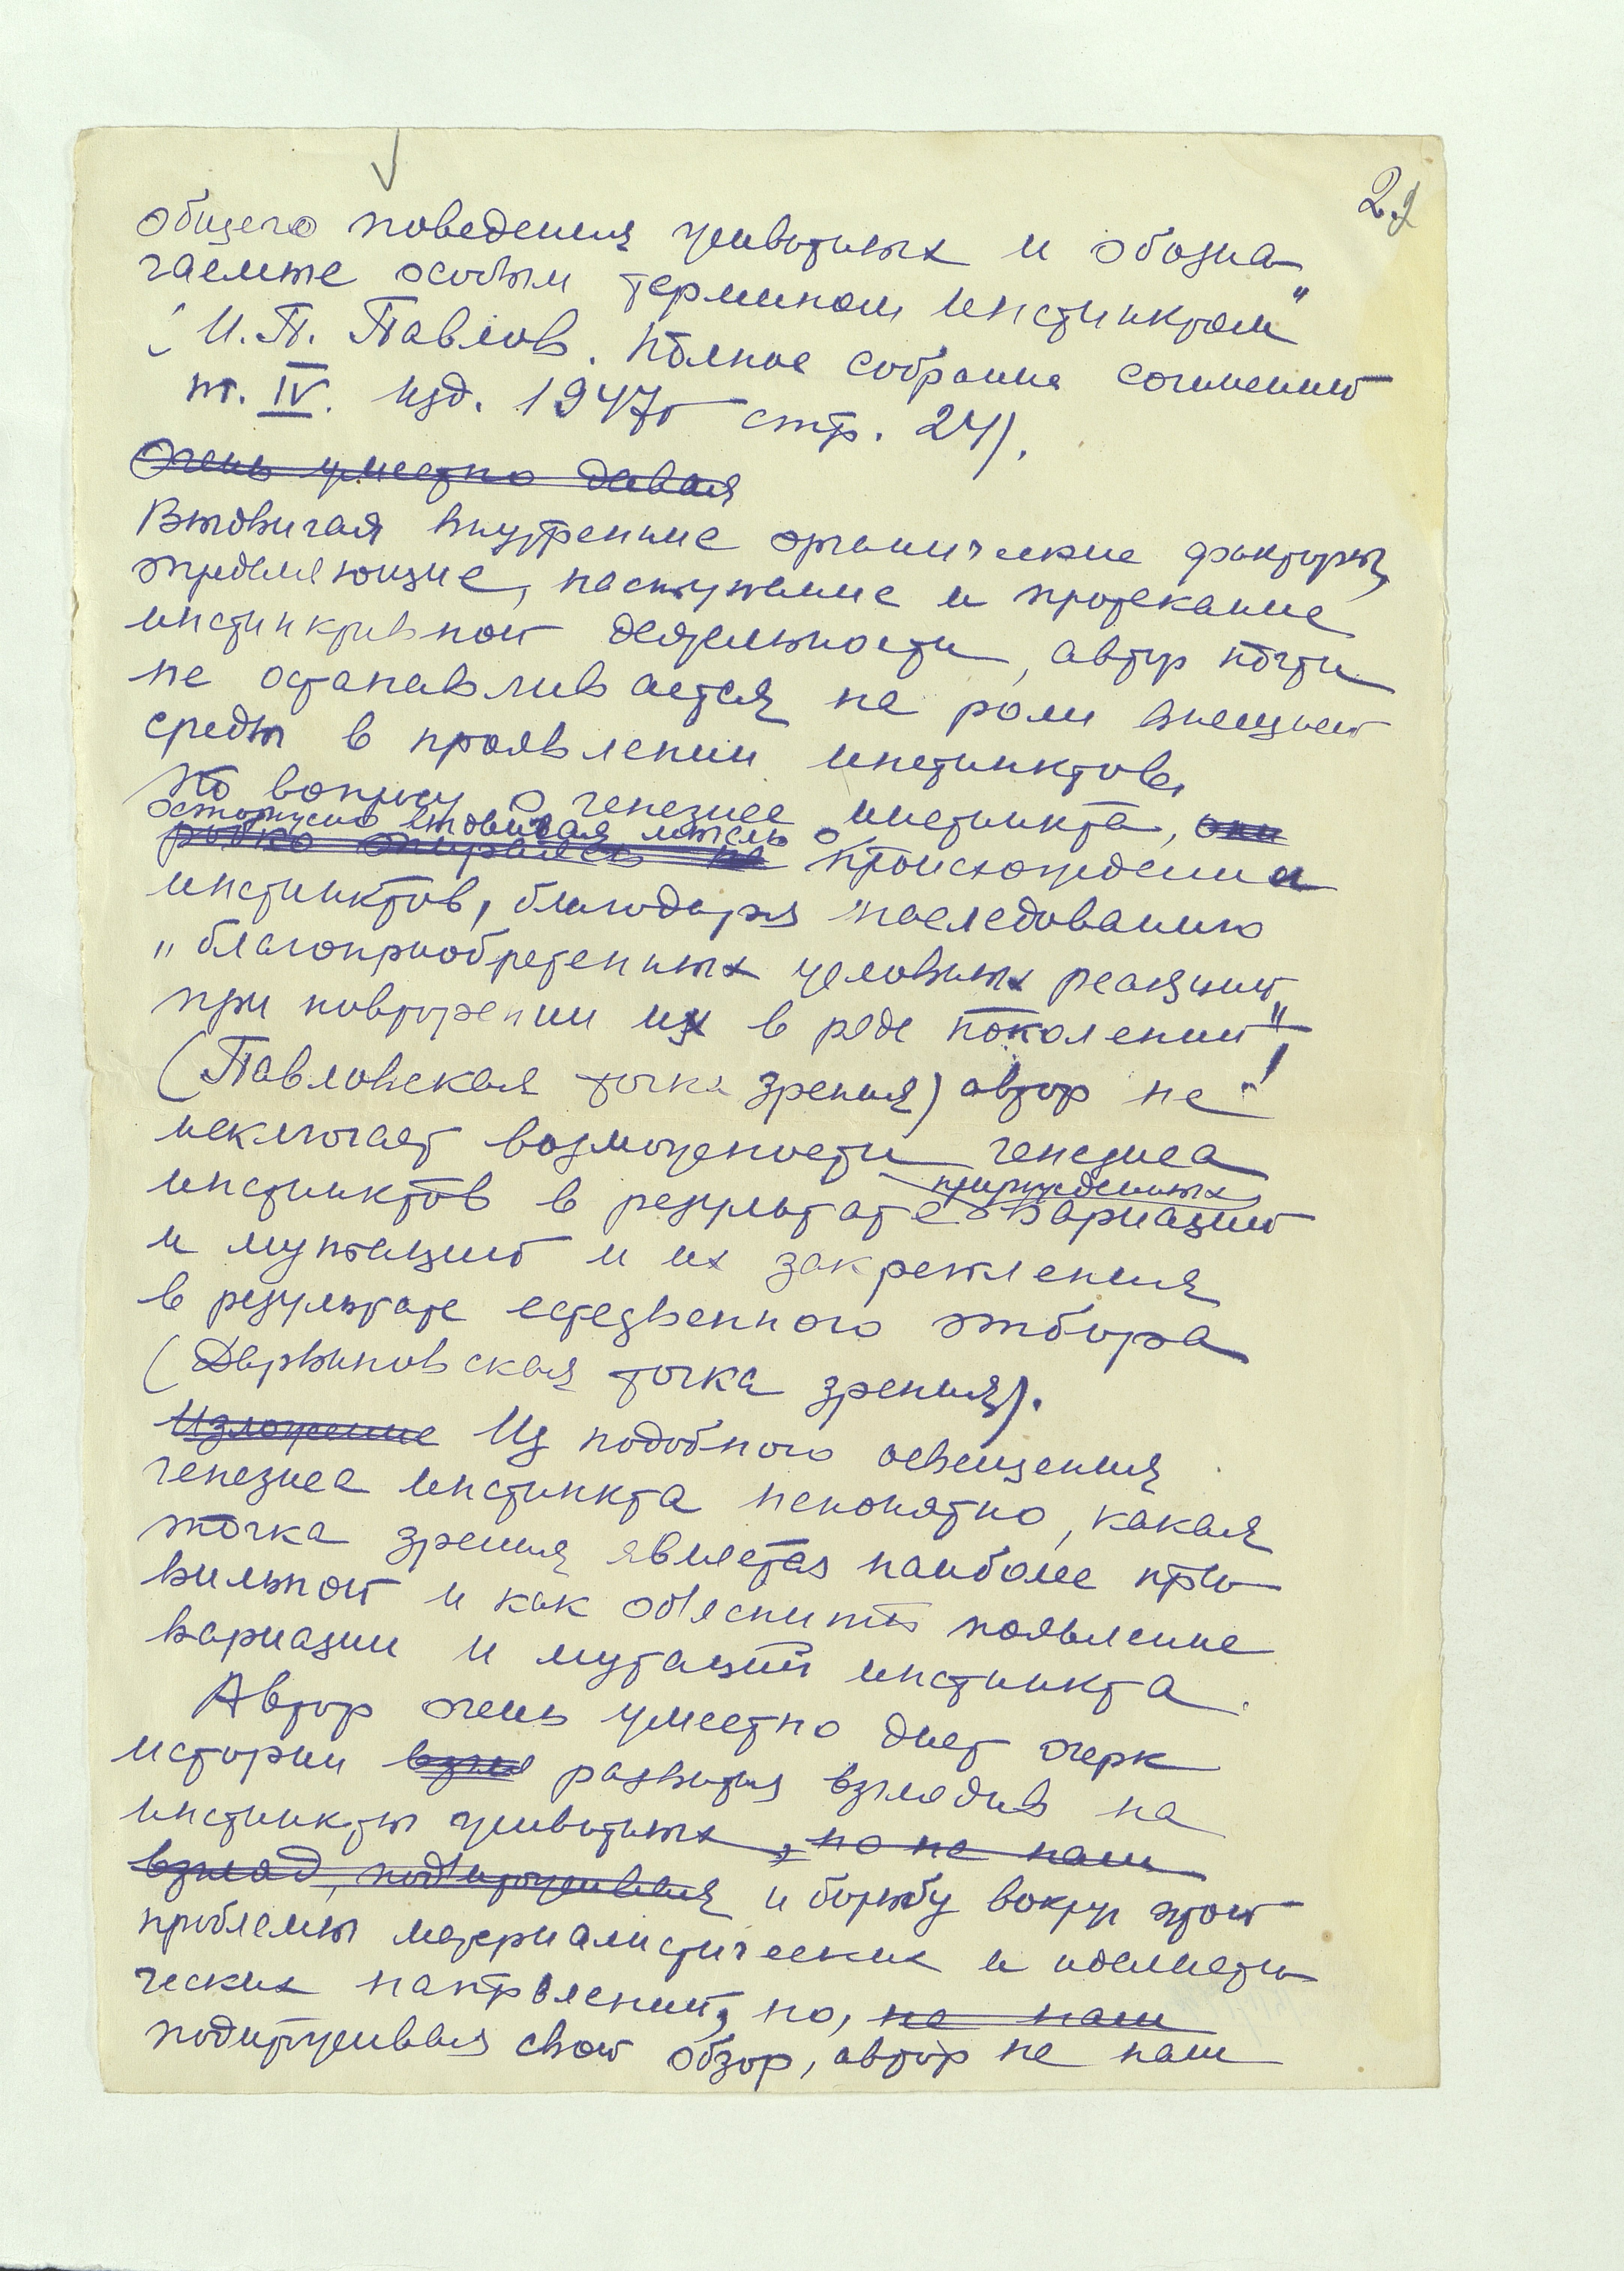 2.
общего поведения животных и обозна-
чаемые особым термином инстинктом"
(И.П. Павлов. Полное собрание сочинений
т. IV. изд. 1947г стр. 24).
Очень уместно давая
Выдвигая внутренние органические факторы,
определяющие, наступление и протекание
инстинктивной деятельности, автор почти
не останавливается на роли внешней
среды в проявлении инстинктов.
По вопросу о генезисе инстинкта, они
осторожно выдвигая мысль о
робко опираясь на происхождении
инстинктов, благодаря наследованию
"благоприобретенных условных реакций
при повторении их в ряде поколений"!
(Павловская точка зрения) автор не
исключает возможности генезиса
прирожденных
инстинктов в результате вариаций
и мутаций и их закрепления
в результате естественного отбора
(Дарвиновская точка зрения).
Изложение Из подобного освещения
генезиса инстинкта непонятно, какая
точка зрения является наиболее пра-
вильной и как объяснить появление
вариации и мутаций инстинкта.
Автор очень уместно дает очерк
истории взгля развития взглядов на
инстинкты животных, но не наш
взгляд, подытоживая и борьбу вокруг этой
проблемы материалистических и идеалисти-
ческих направлений, но, не наш
подытоживая свой обзор, автор не наш